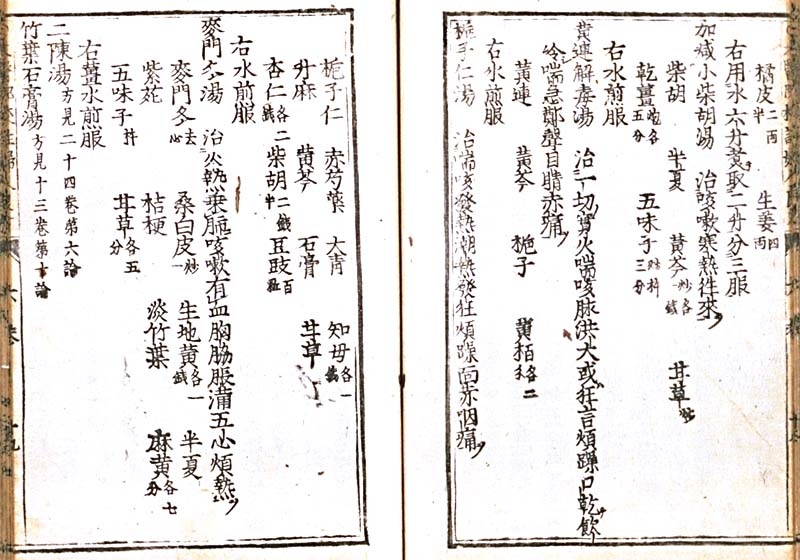 橘皮二両半 生姜四両
右用水六升煮取二升分三服
加減小柴胡湯 治咳嗽寒熱徃來
柴胡 半夏 黄芩炒各一錢 甘草炒
乾薑炮各五分 五味子三分
右水煎服
黄連解毒湯 治一切實火喘咳脉洪大或狂言煩躁口乾飲
冷喘急鄭聲目睛赤痛
黄連 黄芩 梔子 黄栢各二
右水煎服
梔子仁湯 治喘咳發熱潮熱發狂煩躁面赤咽痛
梔子仁 赤芍藥 大青 知母各一錢
升麻 黄芩 石膏 甘草
杏仁各二錢 柴胡二錢半 豆豉百粒
右水煎服
麥門冬湯 治火熱乗肺咳嗽有血胸脇脹滿五心煩熱
麥門冬去心 桑白皮炒一 生地黄各一錢 半夏
紫苑 桔梗 淡竹葉 麻黄各七分
五味子 甘草各五分
右薑水煎服
二陳湯方見二十四卷第六論
竹葉石膏湯方見十三卷第十論
六卷
十九